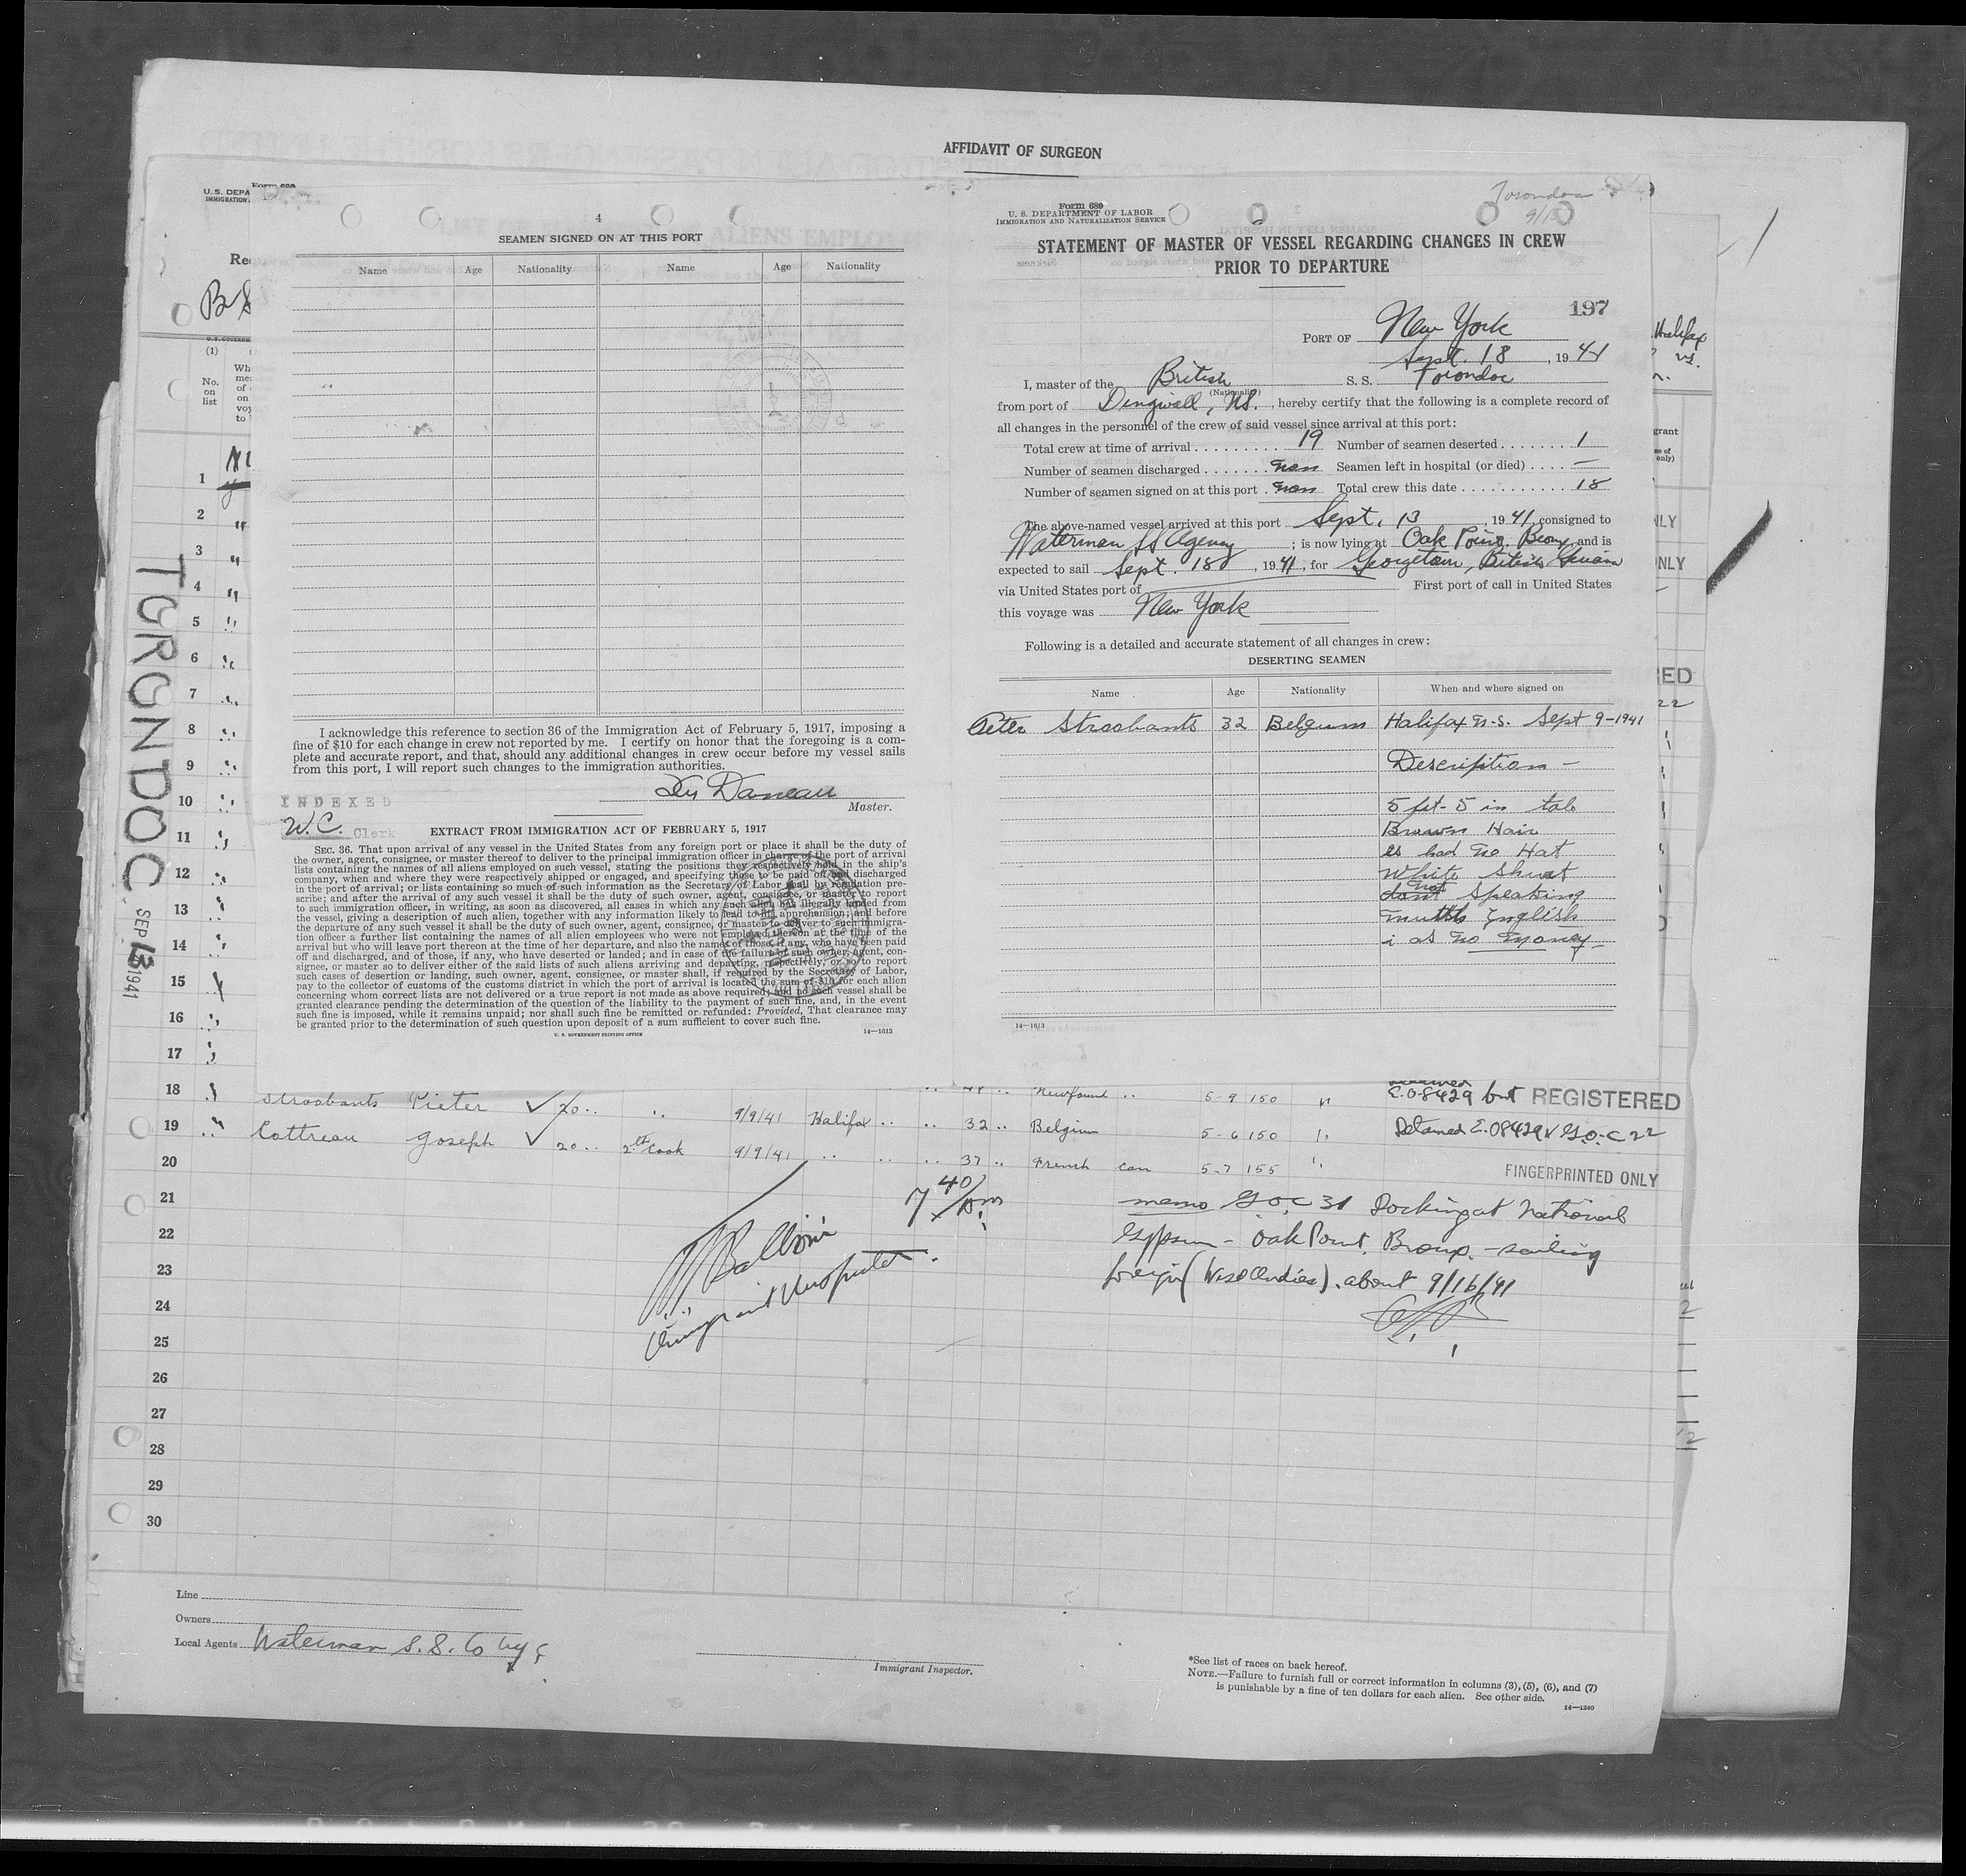 AFFIDAVIT OF SURGEON
Form 689
U.S. DEPA
IMMIGRATION
4
SEAMEN SIGNED ON AT THIS PORT
Name Age Nationality Name Age Nationality
I acknowledge this reference to section 36 of the Immigration Act of February 5, 1917, imposing a
fine of $10 for each change in crew not reported by me. I certify on honor that the foregoing is a com-
plete and accurate report, and that, should any additional changes in crew occur before my vessel sails
from this port, I will report such changes to the immigration authorities.
Daneau
Master.
INDEXED
W.C. Clerk
EXTRACT FROM IMMIGRATION ACT OF FEBRUARY 5, 1917
SEC. 36. That upon arrival of any vessel in the United States from any foreign port or place it shall be the duty of
the owner, agent, consignee, or master thereof to deliver to the principal immigration officer in charge of the port of arrival
lists containing the names of all aliens employed on such vessel, stating the positions they respectively hold in the ship's
company, when and where they were respectively shipped or engaged, and specifying those to be paid off and discharged
in the port of arrival; or lists containing so much of such information as the Secretary of Labor shall by regulation pre-
scribe; and after the arrival of any such vessel it shall be the duty of such owner, agent, consignee, or master to report
to such immigration officer, in writing, as soon as discovered, all cases in which any such alien has illegally landed from
the vessel, giving a description of such alien, together with any information likely to lead to his apprehension; and before
the departure of any such vessel it shall be the duty of such owner, agent, consignee, or master to deliver to such immigra-
tion officer a further list containing the names of all alien employees who were not employed thereon at the time of the
arrival but who will leave port thereon at the time of her departure, and also the names of those, if any, who have been paid
off and discharged, and of those, if any, who have deserted or landed; and in case of the failure of such owner, agent, con-
signee, or master so to deliver either of the said lists of such aliens arriving and departing, respectively, or so to report
such cases of desertion or landing, such owner, agent, consignee, or master shall, if required by the Secretary of Labor,
pay to the collector of customs of the customs district in which the port of arrival is located the sum of $10 for each alien
concerning whom correct lists are not delivered or a true report is not made as above required; and no such vessel shall be
granted clearance pending the determination of the question of the liability to the payment of such fine, and, in the event
such fine is imposed, while it remains unpaid; nor shall such fine be remitted or refunded: Provided, That clearance may
be granted prior to the determination of such question upon deposit of a sum sufficient to cover such fine.
U. S. GOVERNMENT PRINTING OFFICE 14—1613
Torondoc
9/13
Form 689
U. S. DEPARTMENT OF LABOR
IMMIGRATION AND NATURALIZATION SERVICE
STATEMENT OF MASTER OF VESSEL REGARDING CHANGES IN CREW
PRIOR TO DEPARTURE
197
PORT OF New York
Sept. 18, 1941
I, master of the British S. S. Torondoc
(Nationality)
from port of Dingwall, N.S., hereby certify that the following is a complete record of
all changes in the personnel of the crew of said vessel since arrival at this port:
Total crew at time of arrival 19 Number of seamen deserted 1
Number of seamen discharged non Seamen left in hospital (or died) —
Number of seamen signed on at this port non Total crew this date 18
The above-named vessel arrived at this port Sept. 13, 1941, consigned to
Waterman SS Agency; is now lying at Oak Point, Bronx, and is
expected to sail Sept. 18, 1941, for Georgetown, British Guiana
via United States port of First port of call in United States
this voyage was New York
Following is a detailed and accurate statement of all changes in crew:
DESERTING SEAMEN
Name Age Nationality When and where signed on
Peter Stroobants 32 Belgium Halifax N.S. Sept 9-1941
Description —
5 fet-5 in tale
Brown Hair
es had no Hat
White Shirt
dont not Speaking
mutth English
i as no money
14—1613
TORONDOC
SEP 13 1941
(1)
No.
on
list
1
2
3
4
5
6
7
8
9
10
11
12
13
14
15
16
17
18 48 Newfound 5-9 150 E.O.8429 but REGISTERED
19 Stroobants Pieter 20 9/9/41 Halifax 32 Belgium 5-6 150 Detained E.O8429 & G.O.C 22
20 Cottreau Joseph 20 2nd Cook 9/9/41 37 French can 5-7 155 FINGERPRINTED ONLY
21 7 40/pm memo G.O.C 31 Docking at National
22 Gypsum - Oak Point, Bronx - sailing
23 foreign (West Indies). about 9/16/41
24 Immigrant Inspector
25
26
27
28
29
30
Line
Owners
Local Agents Waterman S.S. Co
Immigrant Inspector.
*See list of races on back hereof.
NOTE.—Failure to furnish full or correct information in columns (3), (5), (6), and (7)
is punishable by a fine of ten dollars for each alien. See other side.
14—1240